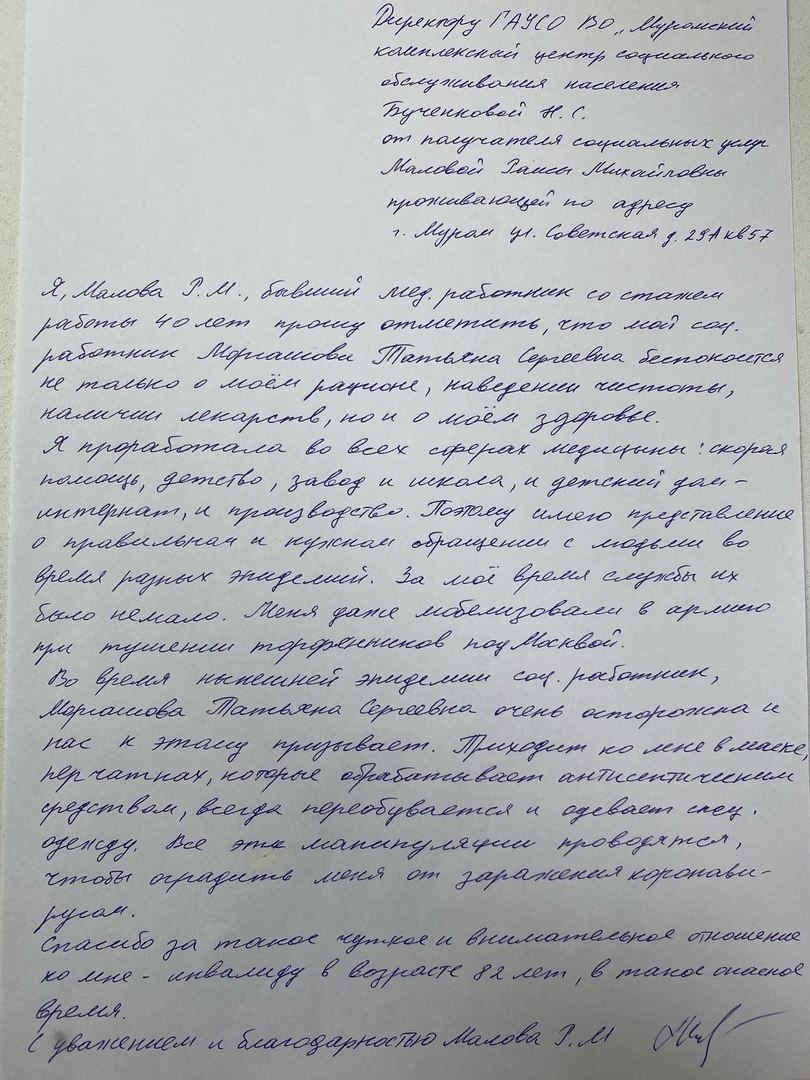 Директору ГАУСО ВО „Муромский
комплексный центр социального
обслуживания населения
Бученковой Н. С.
от получателя социальных услуг
Маловой Раисы Михайловны
проживающей по адресу
г. Муром ул. Советская д. 29А кв 57
Я, Малова Р. М., бывший мед. работник со стажем
работы 40 лет прошу отметить, что мой соц.
работник Моргашова Татьяна Сергеевна беспокоится
не только о моём рационе, наведении чистоты,
наличии лекарств, но и о моём здоровье.
Я проработала во всех сферах медицины: скорая
помощь, детство, завод и школа, и детский дом-
интернат, и производство. Поэтому имею представление
о правильном и нужном обращении с людьми во
время разных эпидемий. За моё время службы их
было немало. Меня даже мобелизовали в армию
при тушении торфенников под Москвой.
Во время нынешней эпидемии соц. работник,
Моргашова Татьяна Сергеевна очень осторожна и
нас к этому призывает. Приходит ко мне в маске,
перчатках, которые обрабатывает антисептическим
средством, всегда переобувается и одевает спец.
одежду. Все эти манипуляции проводятся,
чтобы оградить меня от заражения коронави-
русом.
Спасибо за такое чуткое и внимательное отношение
ко мне - инвалиду в возрасте 82 лет, в такое опасное
время.
С уважением и благодарностью Малова Р. М